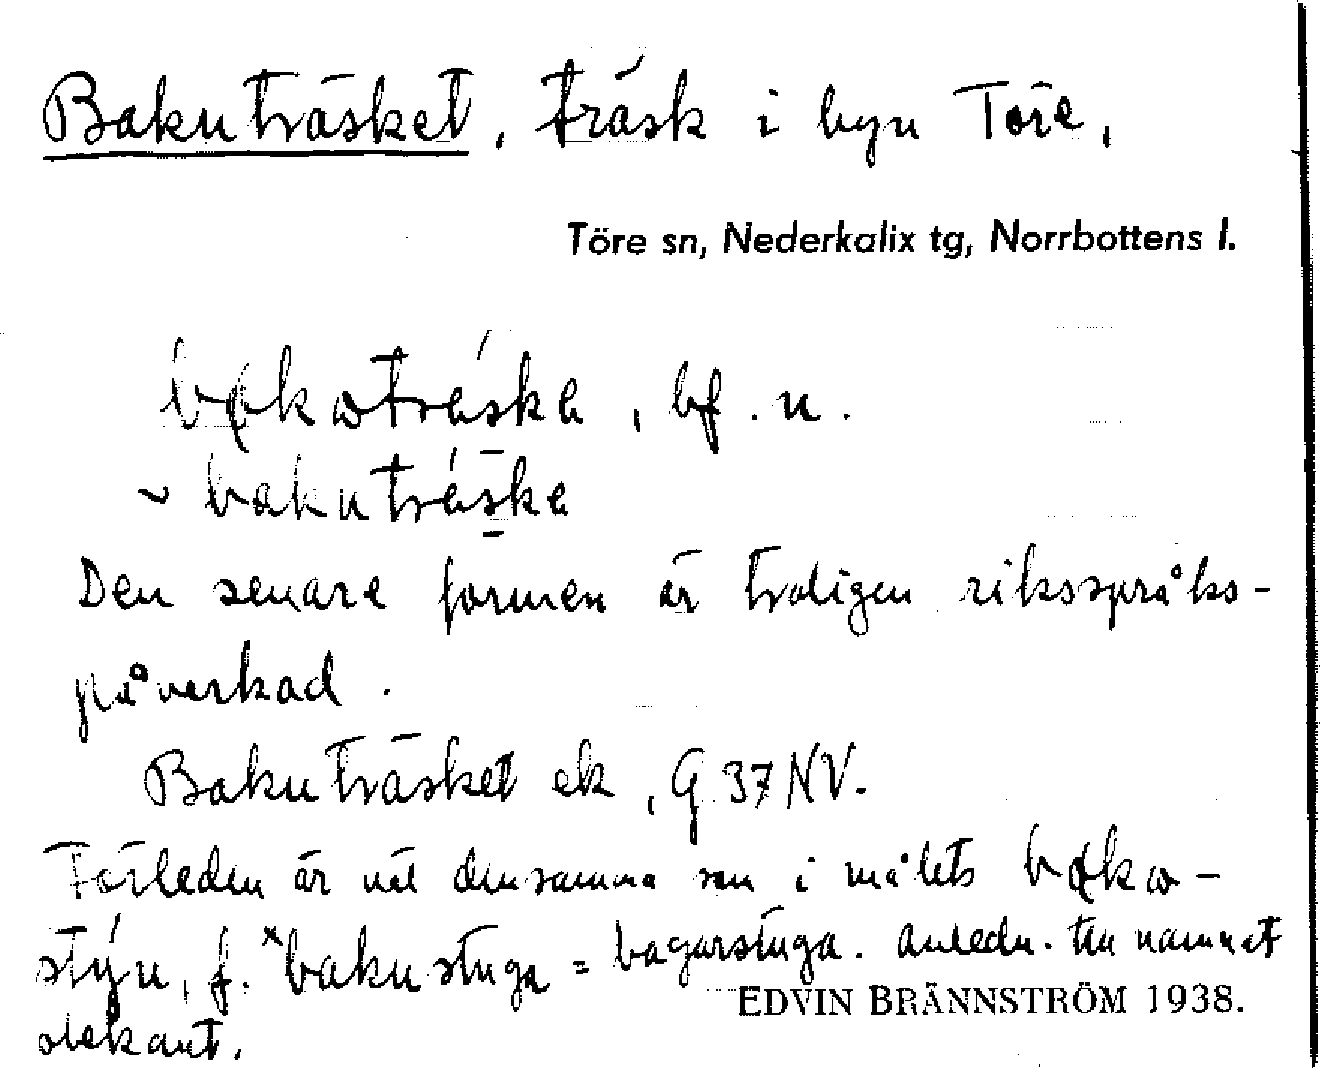 Bakuträsket, träsk i byn Töre,
Töre sn, Nederkalix tg, Norrbottens l.
bf. n.
~ bakuträske
Den senare formen är troligen riksspråks-
påverkad.
Bakuträsket ek, G 37 NV.
Förleden är väl densamma som i målets
f. *bakustuga = bagarstuga. Anledn. till namnet
obekant.
EDVIN BRÄNNSTRÖM 1938.